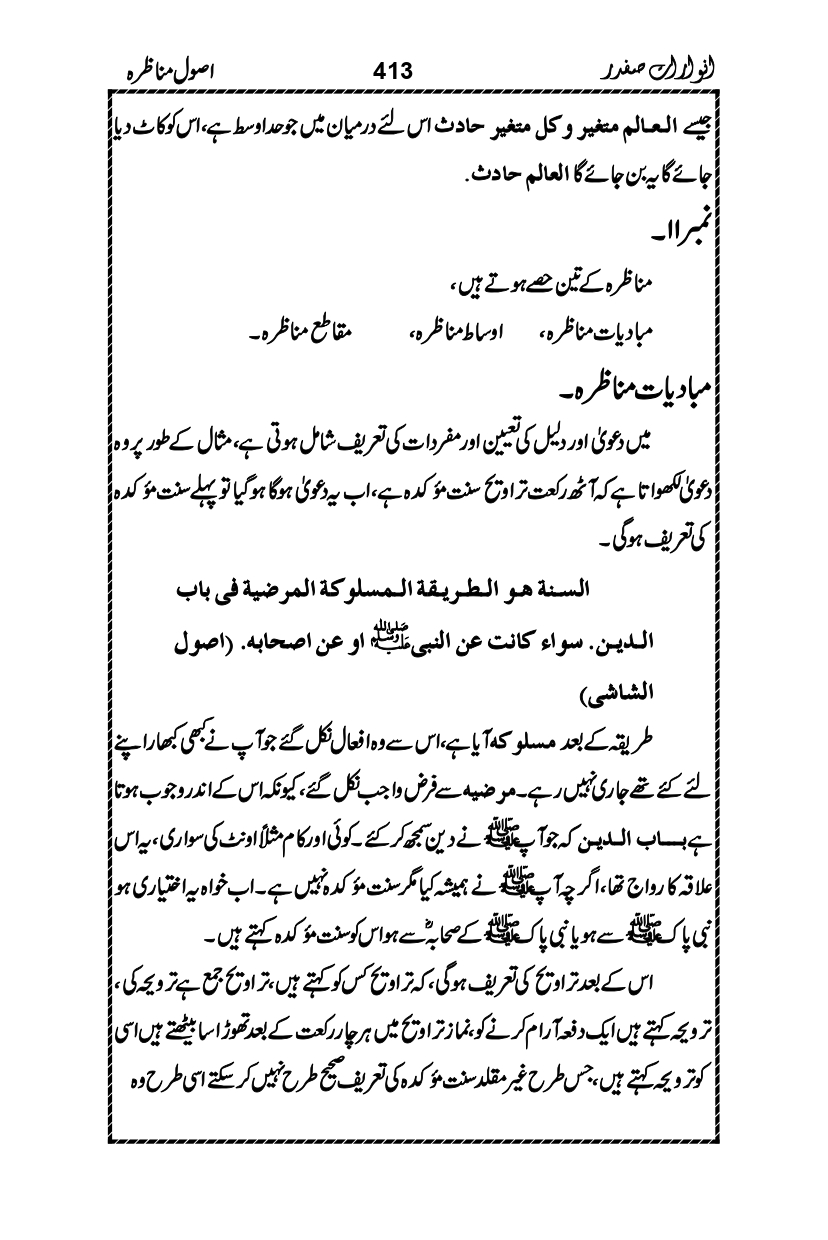 انوارات صفدر 413 اصول مناظرہ
جیسے العالم متغیر وکل متغیر حادث اس لئے درمیان میں جو حد اوسط ہے، اس کو کاٹ دیا
جائے گا یہ بن جائے گا العالم حادث.
نمبر ۱۱۔
مناظرہ کے تین حصے ہوتے ہیں،
مبادیات مناظرہ، اوساط مناظرہ، مقاطع مناظرہ۔
مبادیات مناظرہ۔
میں دعویٰ اور دلیل کی تعیین اور مفردات کی تعریف شامل ہوتی ہے، مثال کے طور پر وہ
دعویٰ لکھواتا ہے کہ آٹھ رکعت تراویح سنت مؤکدہ ہے، اب یہ دعویٰ ہوگا ہوگیا تو پہلے سنت مؤکدہ
کی تعریف ہوگی۔
السنة هو الطريقة المسلوكة المرضية فى باب
الدين. سواء كانت عن النبى ﷺ او عن اصحابه. (اصول
الشاشى)
طریقہ کے بعد مسلوکہ آیا ہے، اس سے وہ افعال نکل گئے جو آپ نے کبھی کبھار اپنے
لئے کئے تھے جاری نہیں رہے۔ مرضیہ سے فرض واجب نکل گئے، کیونکہ اس کے اندر وجوب ہوتا
ہے باب الدین کہ جو آپ ﷺ نے دین سمجھ کر کئے۔ کوئی اور کام مثلاً اونٹ کی سواری، یہ اس
علاقہ کا رواج تھا، اگرچہ آپ ﷺ نے ہمیشہ کیا مگر سنت مؤکدہ نہیں ہے۔ اب خواہ یہ اختیاری ہو
نبی پاک ﷺ سے ہو یا نبی پاک ﷺ کے صحابہؓ سے ہو اس کو سنت مؤکدہ کہتے ہیں۔
اس کے بعد تراویح کی تعریف ہوگی، کہ تراویح کس کو کہتے ہیں، تراویح جمع ہے ترویحہ کی،
ترویحہ کہتے ہیں ایک دفعہ آرام کرنے کو، نماز تراویح میں ہر چار رکعت کے بعد تھوڑا سا بیٹھتے ہیں اسی
کو ترویحہ کہتے ہیں، جس طرح غیر مقلد سنت مؤکدہ کی تعریف صحیح طرح نہیں کر سکتے اسی طرح وہ